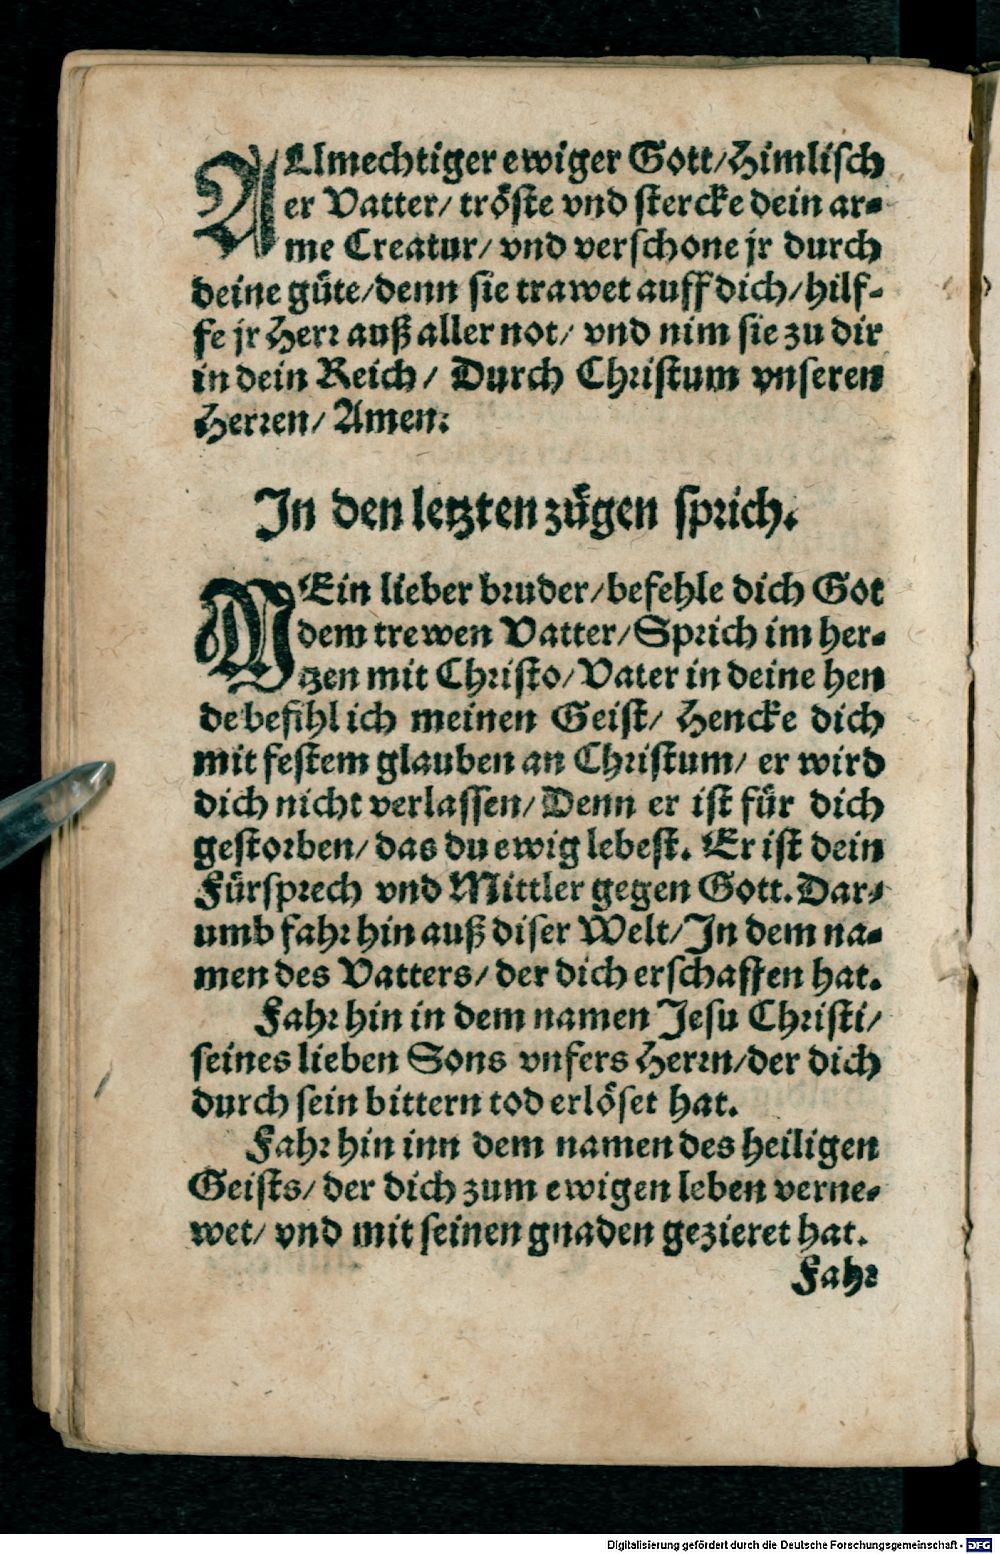 ALlmechtiger ewiger Gott/Himlisch
er Vatter/ tröste vnd stercke dein ar-
me Creatur/ vnd verschone jr durch
deine güte/denn sie trawet auff dich/hilf-
fe jr Herr auß aller not/ vnd nim sie zu dir
in dein Reich/ Durch Christum vnseren
Herren/ Amen.
In den letzten zügen sprich.
MEin lieber bruder/befehle dich Got
dem trewen Vatter/Sprich im her-
tzen mit Christo/Vater in deine hen
de befihl ich meinen Geist/ Hencke dich
mit festem glauben an Christum/ er wird
dich nicht verlassen/Denn er ist für dich
gestorben/das du ewig lebest. Er ist dein
Fürsprech vnd Mittler gegen Gott.Dar-
umb fahr hin auß diser Welt/In dem na-
men des Vatters/der dich erschaffen hat.
Fahr hin in dem namen Jesu Christi/
seines lieben Sons vnsers Herrn/der dich
durch sein bittern tod erlöset hat.
Fahr hin inn dem namen des heiligen
Geists/ der dich zum ewigen leben verne-
wet/ vnd mit seinen gnaden gezieret hat.
Fahr
Digitalisierung gefördert durch die Deutsche Forschungsgemeinschaft - DFG